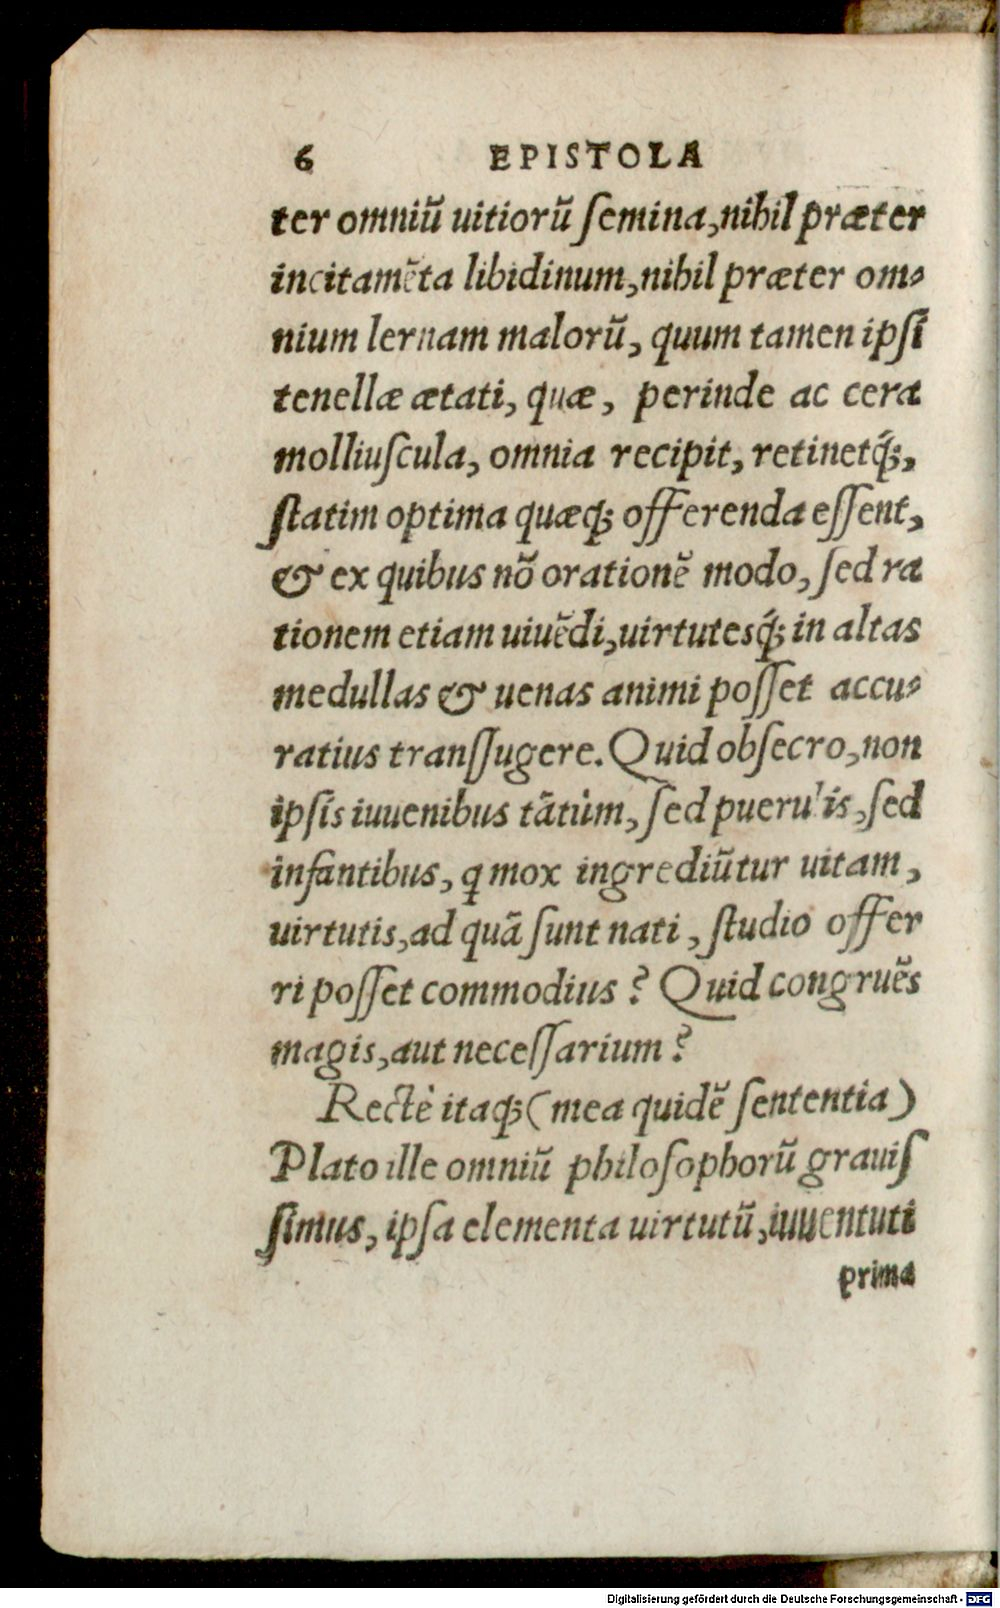 6 EPISTOLA
ter omniũ uitiorũ ſemina, nihil præter
incitamẽta libidinum, nihil præter om⸗
nium lernam malorũ, quum tamen ipſi
tenellæ ætati, quæ, perinde ac cera
molliuſcula, omnia recipit, retinetq́;,
ſtatim optima quæq; offerenda eſſent,
& ex quibus nõ orationẽ modo, ſed ra
tionem etiam uiuẽdi, uirtutesq́; in altas
medullas & uenas animi poſſet accu⸗
ratius tranſſugere. Quid obſecro, non
ipſis iuuenibus tãtùm, ſed puerulis, ſed
infantibus, q mox ingrediũtur uitam,
uirtutis, ad quã ſunt nati, ſtudio offer
ri poſſet commodius? Quid congruẽs
magis, aut neceſſarium?
Rectè itaq; (mea quidẽ ſententia)
Plato ille omniũ philoſophorũ grauiſ
ſimus, ipſa elementa uirtutũ, iuuentuti
prima
Digitalisierung gefördert durch die Deutsche Forschungsgemeinschaft - DFG